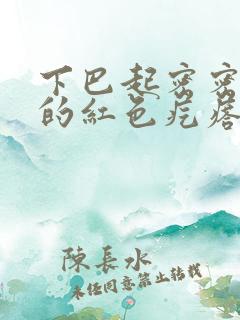 下巴起密密
的紅色疙瘩
陳長水
未經同意禁止轉載